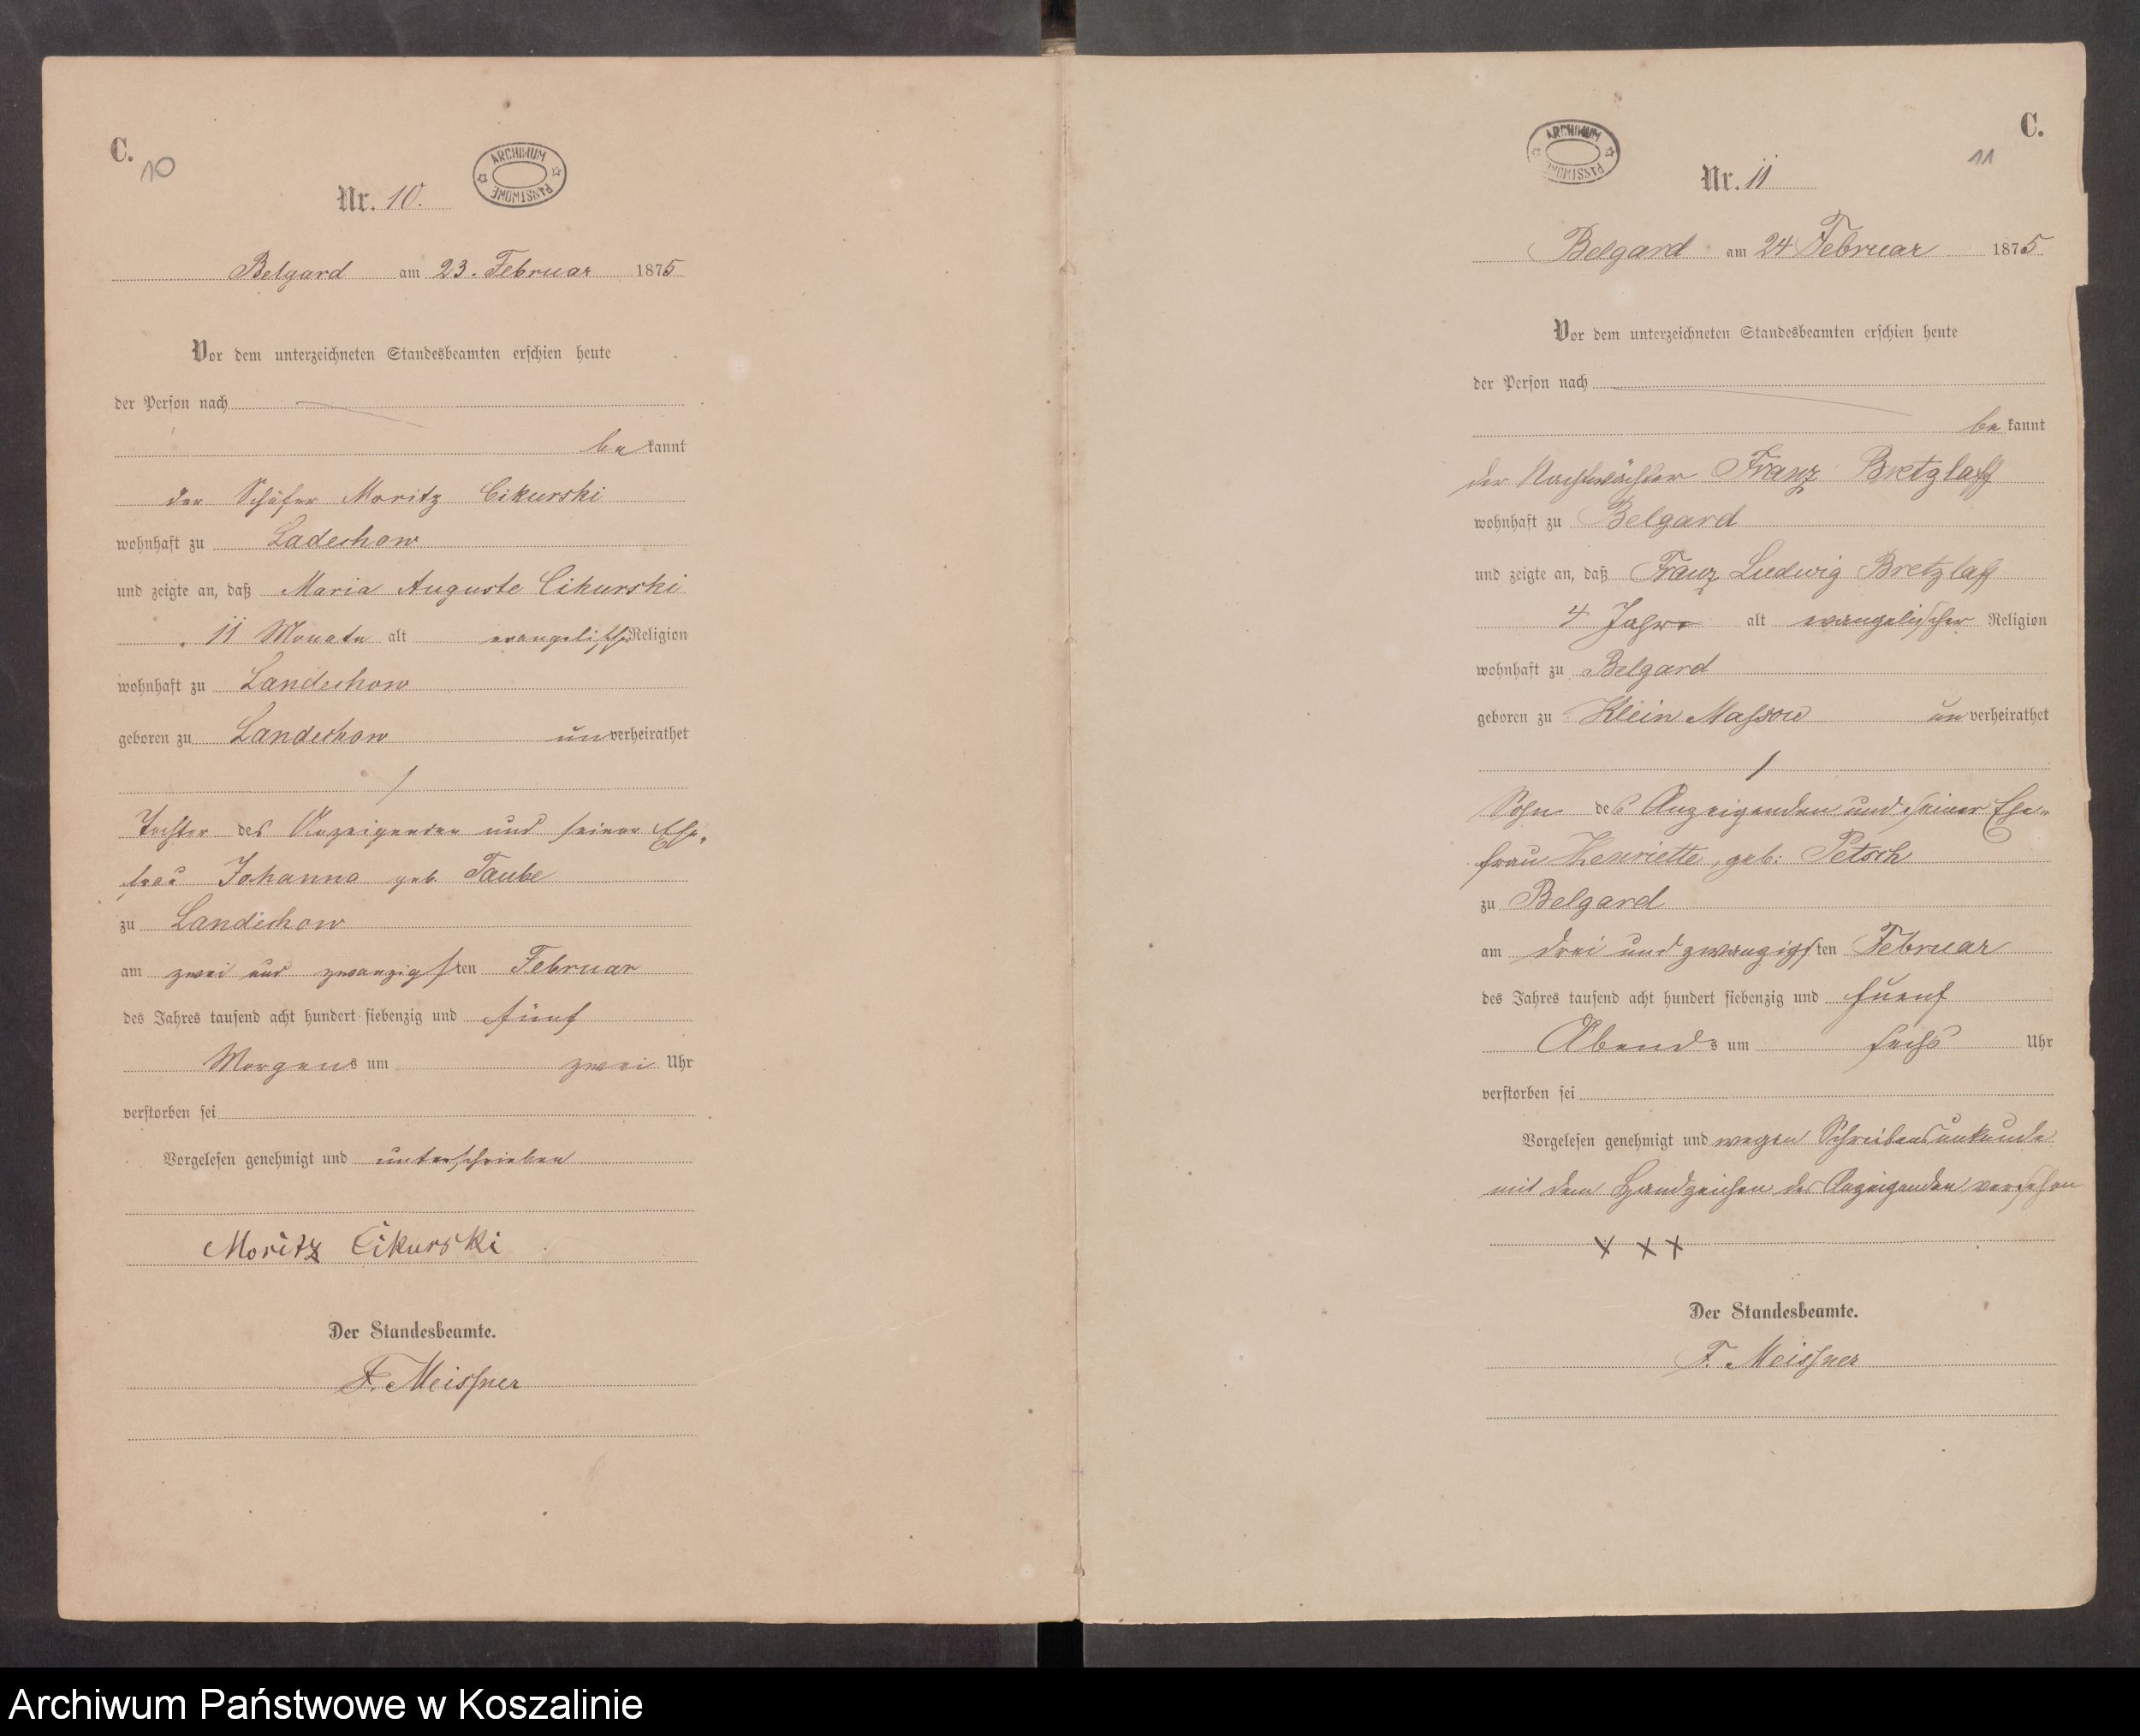 C.
10
ARCHIWUM PAŃSTWOWE
Nr. 10.
Belgard am 23. Februar 1875
Vor dem unterzeichneten Standesbeamten erschien heute
der Person nach
be kannt
der Schäfer Moritz Cikurski
wohnhaft zu Ladechow
und zeigte an, daß Maria Auguste Cikurski
11 Monate alt evangelischer Religion
wohnhaft zu Landechow
geboren zu Landechow un verheirathet
/
Tochter des Anzeigenden und seiner Ehe-
frau Johanna geb. Taube
zu Landechow
am zwei und zwanzigsten Februar
des Jahres tausend acht hundert siebenzig und fünf
Morgens um zwei Uhr
verstorben sei
Vorgelesen genehmigt und unterschrieben
Moritz Cikurski
Der Standesbeamte.
F. Meissner
C.
11
ARCHIWUM PAŃSTWOWE
Nr. 11
Belgard am 24 Februar 1875
Vor dem unterzeichneten Standesbeamten erschien heute
der Person nach
be kannt
der Nachtwächter Franz Bretzlaff
wohnhaft zu Belgard
und zeigte an, daß Franz Ludwig Bretzlaff
4 Jahre alt evangelischer Religion
wohnhaft zu Belgard
geboren zu Klein Massow un verheirathet
/
Sohn des Anzeigenden und seiner Ehe-
frau Henriette, geb: Petsch
zu Belgard
am drei und zwanzigsten Februar
des Jahres tausend acht hundert siebenzig und fuenf
Abends um sechs Uhr
verstorben sei
Vorgelesen genehmigt und wegen Schreibensunkunde
mit dem Handzeichen des Anzeigenden versehen
x x x
Der Standesbeamte.
F. Meissner
Archiwum Państwowe w Koszalinie